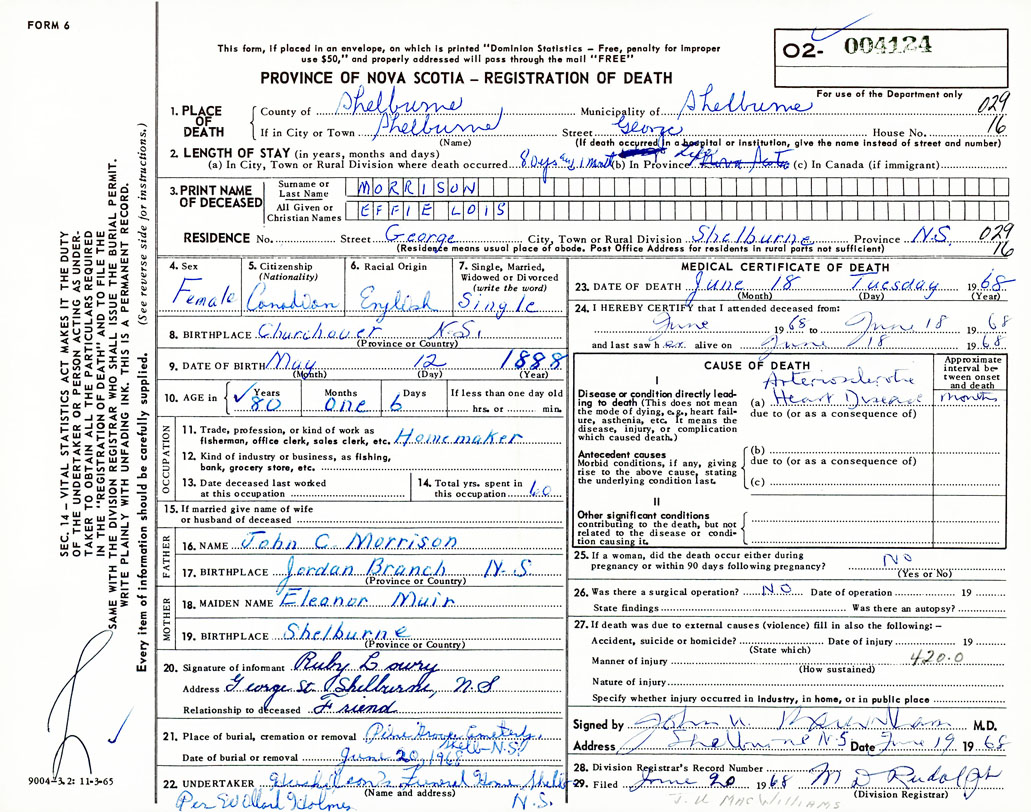 FORM 6
This form, if placed in an envelope, on which is printed "Dominion Statistics – Free, penalty for improper
use $50," and properly addressed will pass through the mail "FREE"
O2- 004124
For use of the Department only
PROVINCE OF NOVA SCOTIA – REGISTRATION OF DEATH
1. PLACE OF DEATH
County of Shelburne Municipality of Shelburne 029
If in City or Town Shelburne Street George House No. 16
(Name) (If death occurred in a hospital or institution, give the name instead of street and number)
2. LENGTH OF STAY (in years, months and days)
(a) In City, Town or Rural Division where death occurred 8 Days 1 Month (b) In Province Life (c) In Canada (if immigrant)
3. PRINT NAME OF DECEASED
Surname or Last Name MORRISON
All Given or Christian Names EFFIE LOIS
RESIDENCE No. Street George City, Town or Rural Division Shelburne Province N.S. 029
(Residence means usual place of abode. Post Office Address for residents in rural parts not sufficient) 16
4. Sex Female
5. Citizenship (Nationality) Canadian
6. Racial Origin English
7. Single, Married, Widowed or Divorced (write the word) Single
8. BIRTHPLACE Churchover N.S.
(Province or Country)
9. DATE OF BIRTH May 12 1888
(Month) (Day) (Year)
10. AGE in Years 80 Months one Days 6 If less than one day old hrs. or min.
OCCUPATION
11. Trade, profession, or kind of work as fisherman, office clerk, sales clerk, etc. Homemaker
12. Kind of industry or business, as fishing, bank, grocery store, etc.
13. Date deceased last worked at this occupation
14. Total yrs. spent in this occupation 60
15. If married give name of wife or husband of deceased
FATHER
16. NAME John C Morrison
17. BIRTHPLACE Jordan Branch N.S.
(Province or Country)
MOTHER
18. MAIDEN NAME Eleanor Muir
19. BIRTHPLACE Shelburne
(Province or Country)
20. Signature of informant Ruby Lowry
Address George St. Shelburne, N.S
Relationship to deceased Friend
21. Place of burial, cremation or removal Pine Grove Cemetery, Shelb- N.S.
Date of burial or removal June 20, 1968
22. UNDERTAKER Funeral Home, Shelb N.S.
(Name and address)
Per Willard Holmes
MEDICAL CERTIFICATE OF DEATH
23. DATE OF DEATH June 18 Tuesday 1968
(Month) (Day) (Year)
24. I HEREBY CERTIFY that I attended deceased from:
June 1968 to June 18 1968
and last saw her alive on June 18 1968
CAUSE OF DEATH
Approximate interval between onset and death
I
Disease or condition directly leading to death (This does not mean the mode of dying, e.g., heart failure, asthenia, etc. It means the disease, injury, or complication which caused death.)
(a) Arteriosclerotic Heart Disease months
due to (or as a consequence of)
Antecedent causes
Morbid conditions, if any, giving rise to the above cause, stating the underlying condition last.
(b)
due to (or as a consequence of)
(c)
II
Other significant conditions contributing to the death, but not related to the disease or condition causing it.
25. If a woman, did the death occur either during pregnancy or within 90 days following pregnancy? No
(Yes or No)
26. Was there a surgical operation? No Date of operation 19
State findings Was there an autopsy?
27. If death was due to external causes (violence) fill in also the following: –
Accident, suicide or homicide? Date of injury 19
(State which)
Manner of injury 420.0
(How sustained)
Nature of injury
Specify whether injury occurred in industry, in home, or in public place
Signed by John M.D.
Address Shelburne N.S Date June 19 1968
28. Division Registrar's Record Number
29. Filed June 20 1968 M D Rudolph
(Division Registrar)
J. U MacWilliams
SEC. 14 – VITAL STATISTICS ACT MAKES IT THE DUTY
OF THE UNDERTAKER OR PERSON ACTING AS UNDER-
TAKER TO OBTAIN ALL THE PARTICULARS REQUIRED
IN THE "REGISTRATION OF DEATH" AND TO FILE THE
SAME WITH THE DIVISION REGISTRAR WHO SHALL ISSUE THE BURIAL PERMIT.
WRITE PLAINLY WITH UNFADING INK. THIS IS A PERMANENT RECORD.
Every item of information should be carefully supplied. (See reverse side for instructions.)
9004-3.2: 11-3-65